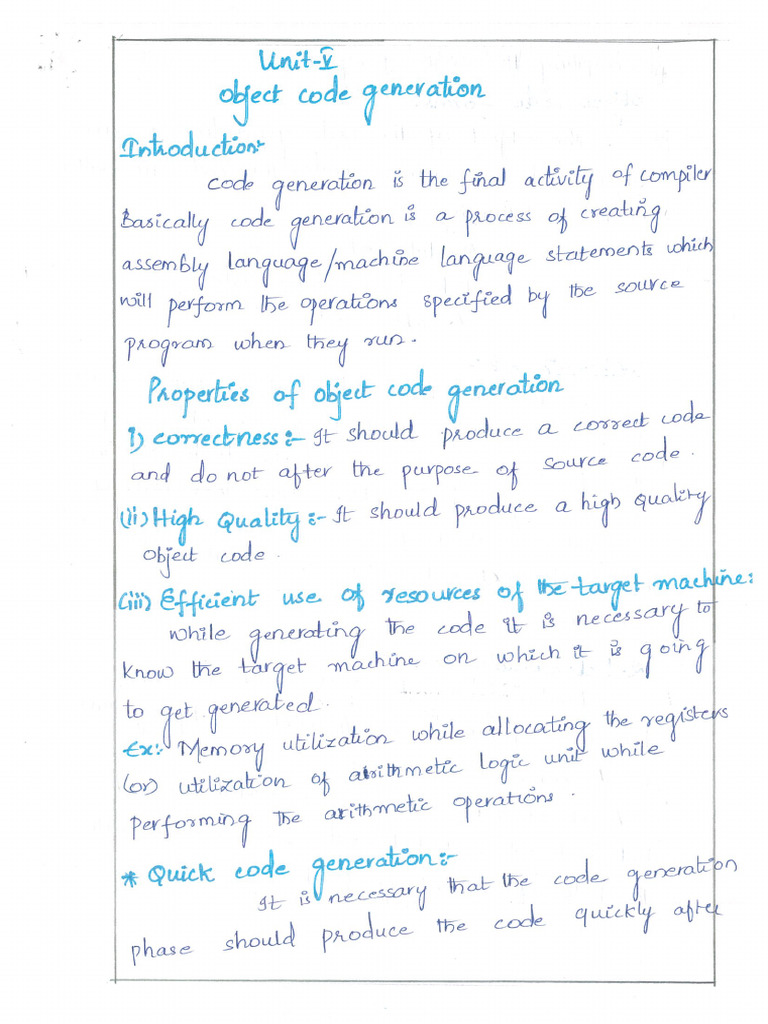 Unit-V
Object code generation
Introduction:-
Code generation is the final activity of compiler
Basically code generation is a process of creating
assembly language/machine language statements which
will perform the operations specified by the source
program when they run.
Properties of object code generation
i) correctness:- It should produce a correct code
and do not after the purpose of source code.
(ii) High Quality:- It should produce a high quality
object code.
(iii) Efficient use of resources of the target machine:
while generating the code it is necessary to
know the target machine on which it is going
to get generated.
Ex:- Memory utilization while allocating the registers
(or) utilization of arithmetic logic unit while
performing the arithmetic operations.
* Quick code generation:-
It is necessary that the code generation
phase should produce the code quickly after